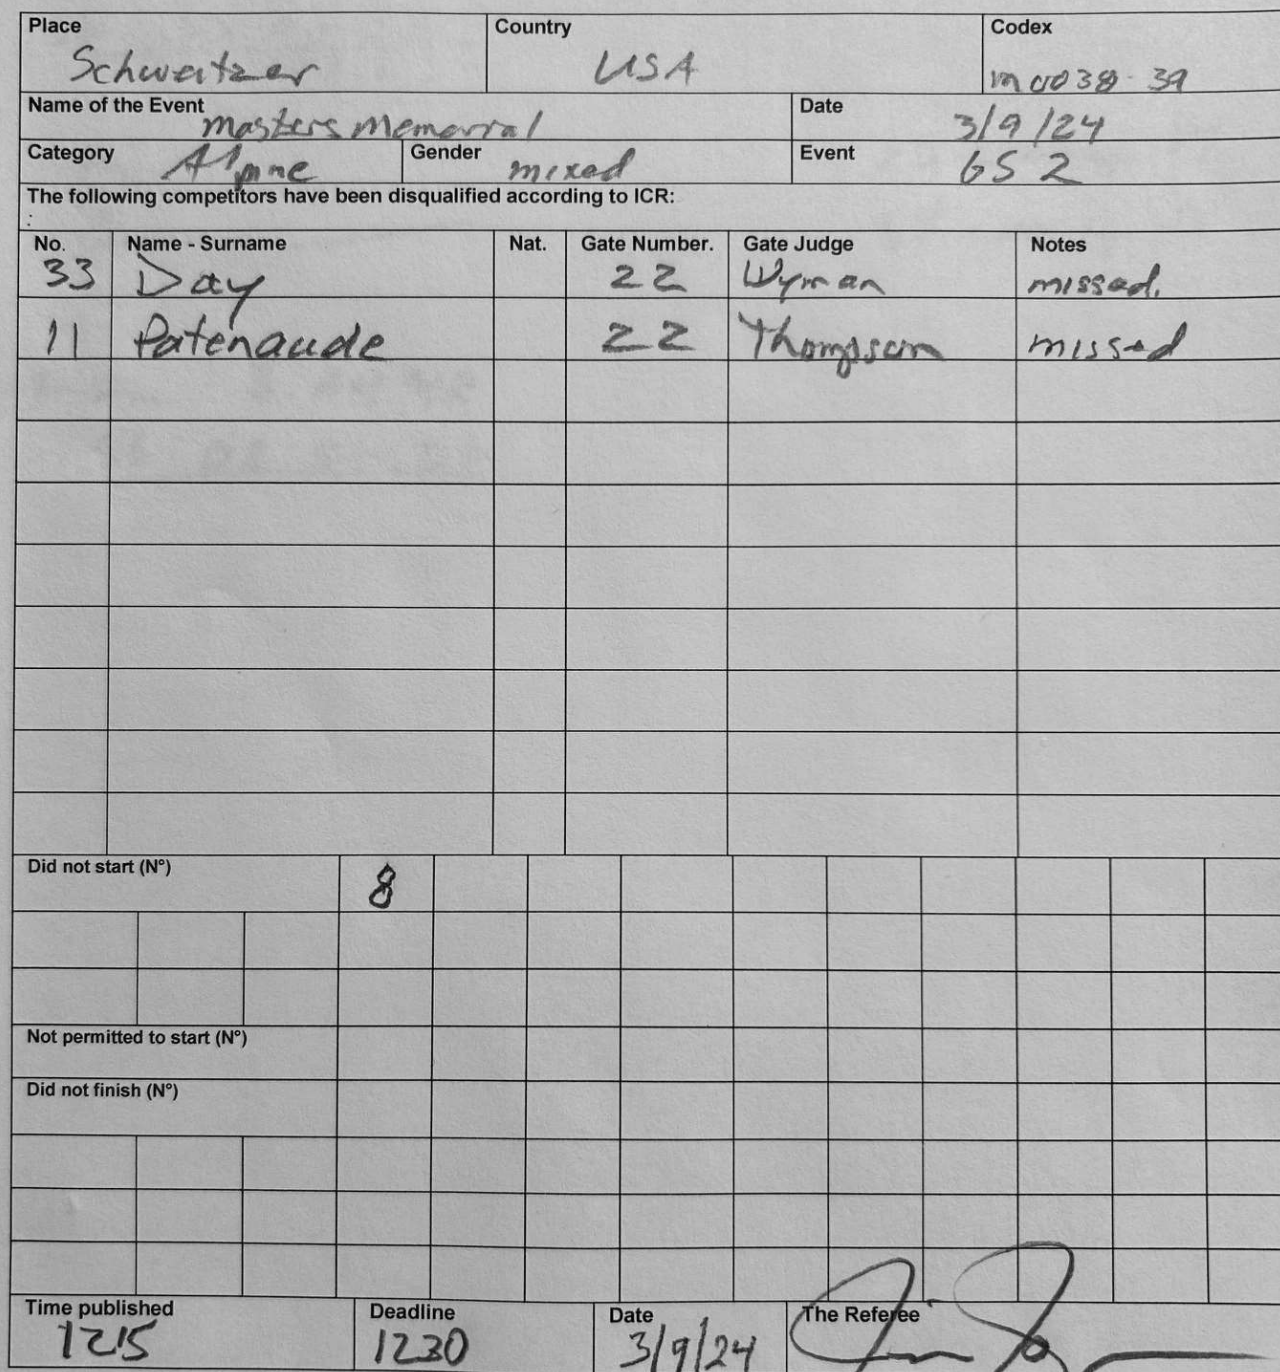 Place Country Codex
Schweitzer USA M0038-39
Name of the Event Masters Memorral Date 3/9/24
Category Alpine Gender mixed Event GS 2
The following competitors have been disqualified according to ICR:
:
No. Name - Surname Nat. Gate Number. Gate Judge Notes
33 Day 22 Wyman missed.
11 Patenaude 22 Thompson missed
Did not start (N°) 8
Not permitted to start (N°)
Did not finish (N°)
Time published Deadline Date The Referee
1215 1230 3/9/24